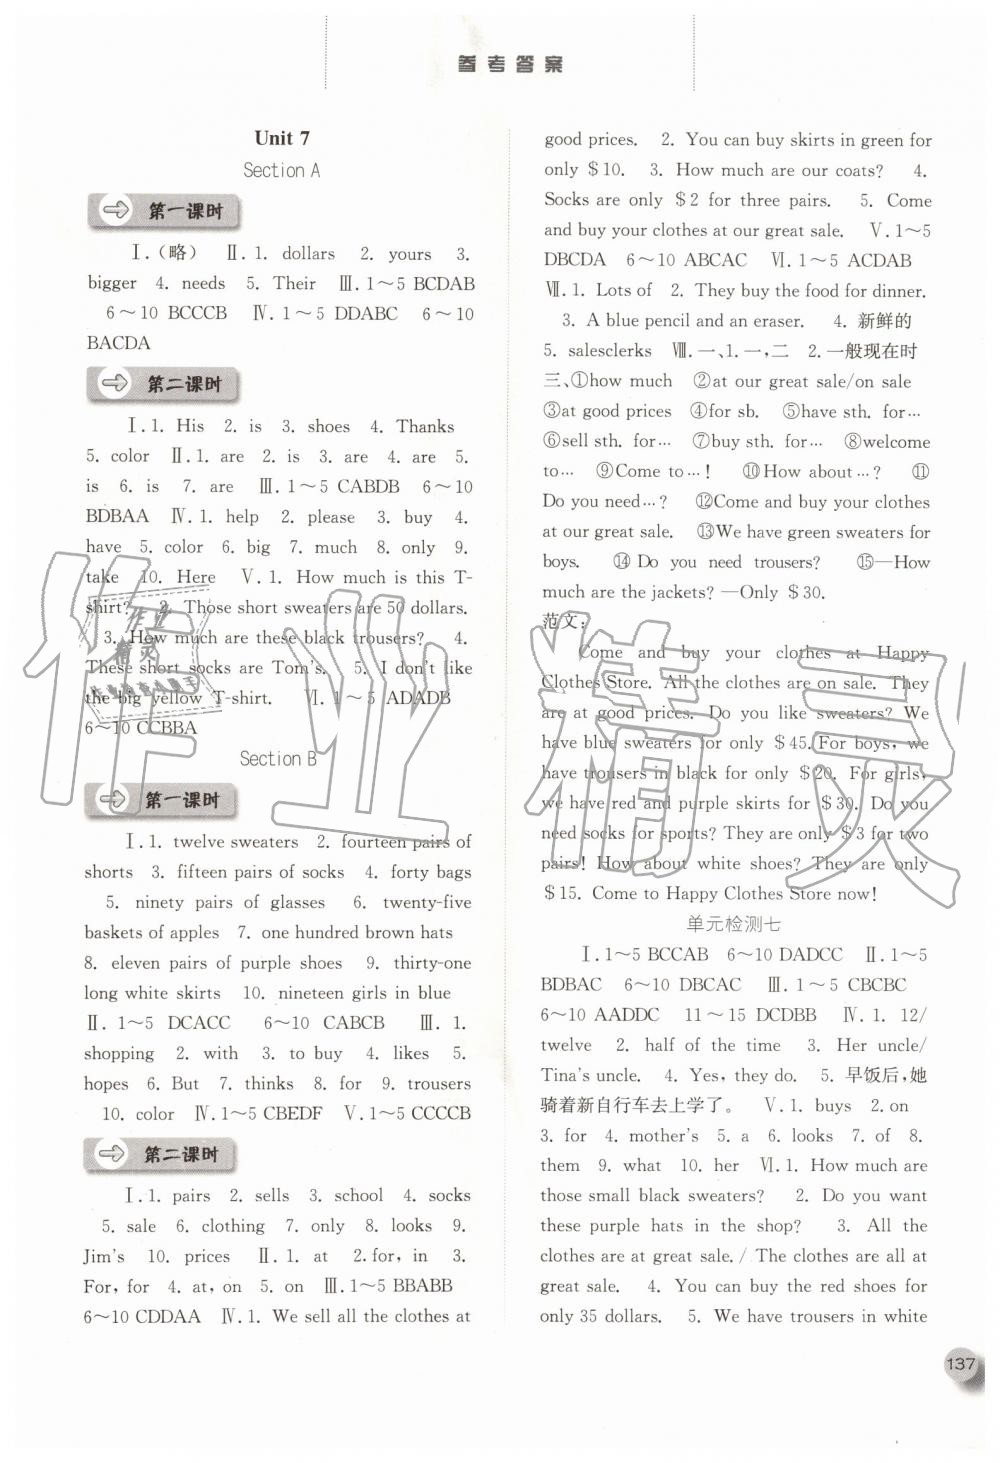 参考答案
Unit 7
Section A
第一课时
Ⅰ.(略) Ⅱ.1. dollars 2. yours 3.
bigger 4. needs 5. Their Ⅲ.1～5 BCDAB
6～10 BCCCB Ⅳ.1～5 DDABC 6～10
BACDA
第二课时
Ⅰ.1. His 2. is 3. shoes 4. Thanks
5. color Ⅱ.1. are 2. is 3. are 4. are 5.
is 6. is 7. are Ⅲ.1～5 CABDB 6～10
BDBAA Ⅳ.1. help 2. please 3. buy 4.
have 5. color 6. big 7. much 8. only 9.
take 10. Here Ⅴ.1. How much is this T-
shirt? 2. Those short sweaters are 50 dollars.
3. How much are these black trousers? 4.
These short socks are Tom's. 5. I don't like
the big yellow T-shirt. Ⅵ.1～5 ADADB
6～10 CCBBA
Section B
第一课时
Ⅰ.1. twelve sweaters 2. fourteen pairs of
shorts 3. fifteen pairs of socks 4. forty bags
5. ninety pairs of glasses 6. twenty-five
baskets of apples 7. one hundred brown hats
8. eleven pairs of purple shoes 9. thirty-one
long white skirts 10. nineteen girls in blue
Ⅱ.1～5 DCACC 6～10 CABCB Ⅲ.1.
shopping 2. with 3. to buy 4. likes 5.
hopes 6. But 7. thinks 8. for 9. trousers
10. color Ⅳ.1～5 CBEDF Ⅴ.1～5 CCCCB
第二课时
Ⅰ.1. pairs 2. sells 3. school 4. socks
5. sale 6. clothing 7. only 8. looks 9.
Jim's 10. prices Ⅱ.1. at 2. for, in 3.
For, for 4. at, on 5. on Ⅲ.1～5 BBABB
6～10 CDDAA Ⅳ.1. We sell all the clothes at
good prices. 2. You can buy skirts in green for
only $10. 3. How much are our coats? 4.
Socks are only $2 for three pairs. 5. Come
and buy your clothes at our great sale. Ⅴ.1～5
DBCDA 6～10 ABCAC Ⅵ.1～5 ACDAB
Ⅶ.1. Lots of 2. They buy the food for dinner.
3. A blue pencil and an eraser. 4. 新鲜的
5. salesclerks Ⅷ.一、1.一,二 2.一般现在时
三、①how much ②at our great sale/on sale
③at good prices ④for sb. ⑤have sth. for…
⑥sell sth. for… ⑦buy sth. for… ⑧welcome
to… ⑨Come to…! ⑩How about…? ⑪
Do you need…? ⑫Come and buy your clothes
at our great sale. ⑬We have green sweaters for
boys. ⑭Do you need trousers? ⑮—How
much are the jackets? —Only $30.
范文:
Come and buy your clothes at Happy
Clothes Store. All the clothes are on sale. They
are at good prices. Do you like sweaters? We
have blue sweaters for only $45. For boys, we
have trousers in black for only $20. For girls,
we have red and purple skirts for $30. Do you
need socks for sports? They are only $3 for two
pairs! How about white shoes? They are only
$15. Come to Happy Clothes Store now!
单元检测七
Ⅰ.1～5 BCCAB 6～10 DADCC Ⅱ.1～5
BDBAC 6～10 DBCAC Ⅲ.1～5 CBCBC
6～10 AADDC 11～15 DCDBB Ⅳ.1. 12/
twelve 2. half of the time 3. Her uncle/
Tina's uncle. 4. Yes, they do. 5. 早饭后,她
骑着新自行车去上学了。 Ⅴ.1. buys 2. on
3. for 4. mother's 5. a 6. looks 7. of 8.
them 9. what 10. her Ⅵ.1. How much are
those small black sweaters? 2. Do you want
these purple hats in the shop? 3. All the
clothes are at great sale. / The clothes are all at
great sale. 4. You can buy the red shoes for
only 35 dollars. 5. We have trousers in white
137
作业精灵
作业
精灵